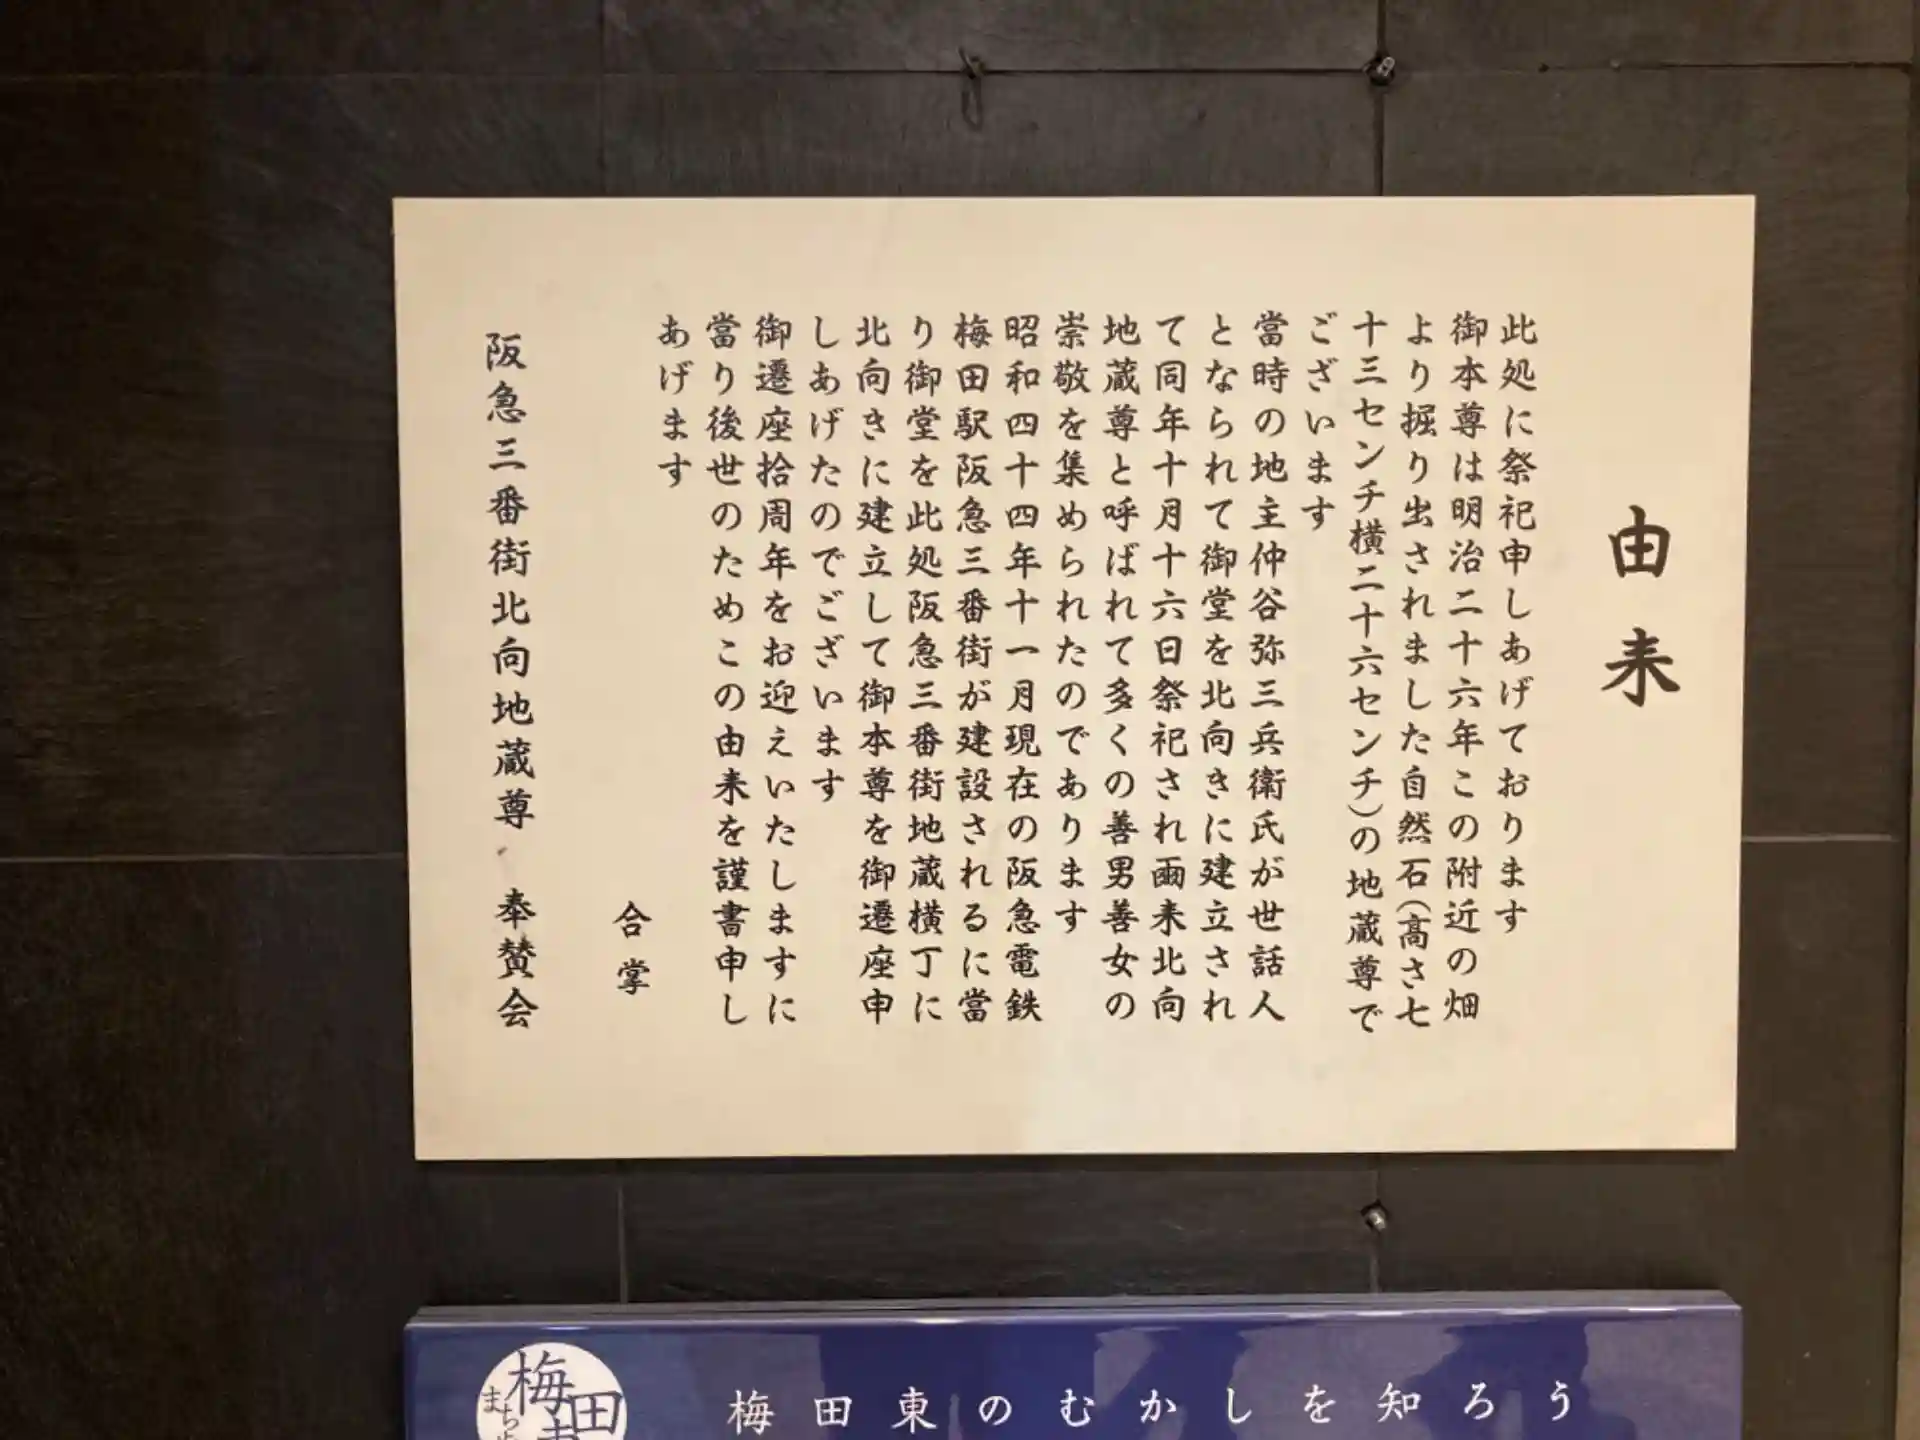 由来
此処に祭祀申しあげております
御本尊は明治二十六年この附近の畑
より掘り出されました自然石(高さ七
十三センチ横二十六センチ)の地蔵尊で
ございます
當時の地主仲谷弥三兵衛氏が世話人
となられて御堂を北向きに建立され
て同年十月十六日祭祀され爾来北向
地蔵尊と呼ばれて多くの善男善女の
崇敬を集められたのであります
昭和四十四年十一月現在の阪急電鉄
梅田駅阪急三番街が建設されるに當
り御堂を此処阪急三番街地蔵横丁に
北向きに建立して御本尊を御遷座申
しあげたのでございます
御遷座拾周年をお迎えいたしますに
當り後世のためこの由来を謹書申し
あげます
合掌
阪急三番街北向地蔵尊 奉賛会
梅田東のむかしを知ろう
梅田
まち